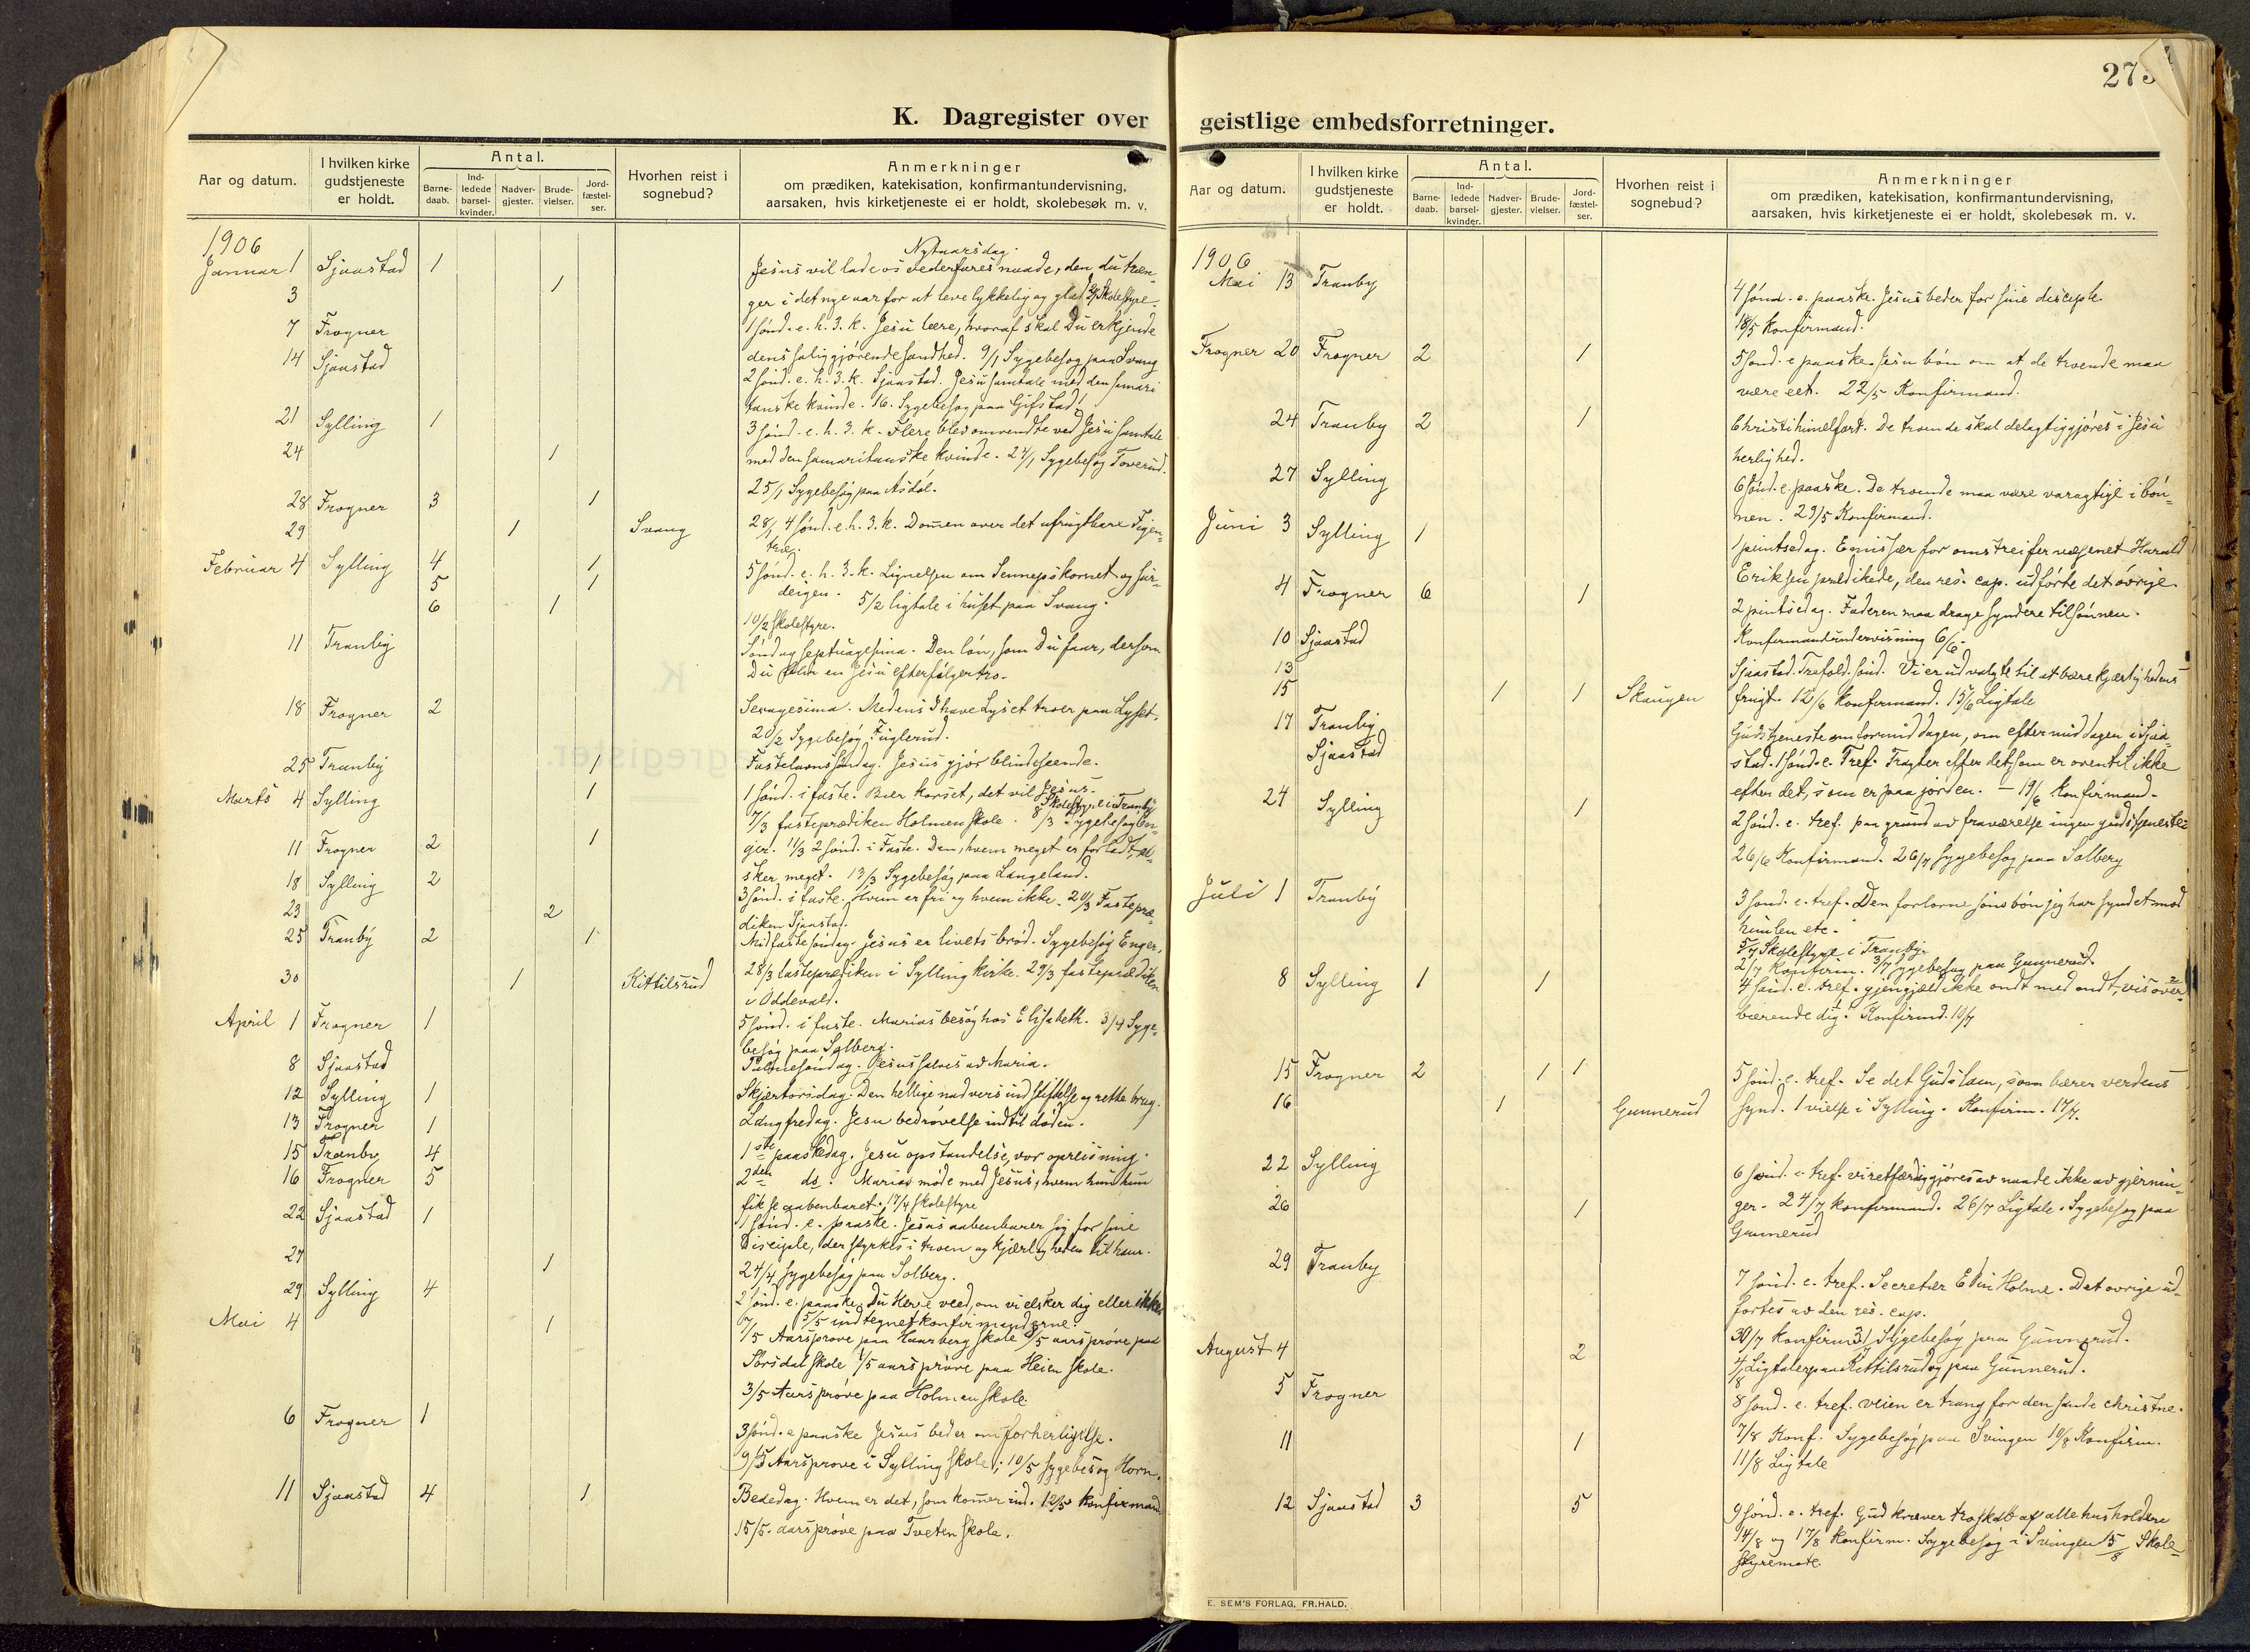 K. Dagregister over
Aar og datum.
I hvilken kirke gudstjeneste er holdt.
Antal.
Barne-daab.
Ind-ledede barsel-kvinder.
Nadver-gjester.
Brude-vielser.
Jord-fæstel-ser.
Hvorhen reist i sognebud?
Anmerkninger
om prædiken, katekisation, konfirmantundervisning,
aarsaken, hvis kirketjeneste ei er holdt, skolebesøk m. v.
1906
Nytaarsdag.
Januar 1 Sjaastad 1 Jesus vil lade os vederfares naade, den du træn-
3 1 ger i det nye aar for at leve lykkelig og glad Skolestyre.
7 Frogner 1 sønd. e. h. 3. k. Jesu lære, hvoraf skal Du erkjende
14 Sjaastad dens saliggjørende sandhed. 9/1 Sygebesøg paa Svang
2 sønd. e. h. 3. k. Sjaastad. Jesu samtale med den samari
tanske kvinde. 16. Sygebesøg paa Gifstad.
21 Sylling 1 3 sønd. e. h. 3. k. Flere blev omvendte ved Jesu samtale
24 1 med den samaritanske kvinde. 24/1 Sygebesøg Toverud.
25/1 Sygebesøg paa Asdøl.
28 Frogner 3 1
29 1 Svang 28/1 4 sønd. e. h. 3. k. Domen over det ufrugtbare Figen-
træ.
Februar 4 Sylling 4 1 5 sønd. e. h. 3. k. Lignelsen om Sennepskornet og sur-
5 1 deigen. 5/2 ligtale i huset paa Svang.
6 1
10/2 Skolestyre.
11 Tranby Søndag septuagesima. Den løn, som Du faar, dersom
Du bliver en Jesu efterfølger tro.
18 Frogner 2 Sexagesima. Medens I have Lyset troer paa Lyset.
20/2 Sygebesøg Fuglerud.
25 Tranby 1 Fastelavnssøndag. Jesus gjør blinde seende.
Marts 4 Sylling 1 1 sønd. i faste. Bær korset, det vil Jesus.
Skolestyre i Tranby
7/3 fasteprædiken Holmen skole. 8/3 Sygebesøg En-
11 Frogner 2 1 ger. 11/3 2 sønd. i Faste. Den, hvem meget er forladt, el-
18 Sylling 2 sker meget. 13/3 Sygebesøg paa Langeland.
23 2 3 sønd. i faste. Hvem er fri og hvem ikke. 20/3 Fastepræ-
diken Sjaastad.
25 Tranby 2 1 Midfastesøndag. Jesus er livets brød. Sygebesøg Enger.
30 1 Kittilsrud 28/3 fasteprædiken i Sylling kirke. 29/3 fasteprædiken
i Oddevald.
April 1 Frogner 1 5 sønd. i faste. Marias besøg hos Elisabeth. 3/4 Syge-
besøg paa Solberg.
8 Sjaastad Palmesøndag. Jesus salves av Maria.
12 Sylling 1 Skjærtorsdag. Den hellige nadvers indstiftelse og rette brug.
13 Frogner 1 Langfredag. Jesu bedrøvelse indtil døden.
15 Tranby 4 1ste paaskedag. Jesu opstandelse, vor opreisning.
16 Frogner 5 2den do. Marias møde med Jesus, hvem hun
fik se aabenbaret. 17/4 skolestyre
22 Sjaastad 1 1 sønd. e. paaske. Jesus aabenbarer sig for sine
Disciple, der styrkes i troen og kjærligheden til ham.
27 1
24/4 sygebesøg paa Solberg.
29 Sylling 4 2 sønd. e. paaske. Du Herre veed, om vi elsker dig eller ikke
5/5 indtegnet konfirmanderne.
Mai 4 1 7/5 Aarsprøve paa Haarberg skole aarsprøve paa
Sørsdal skole 1/5 aarsprøve paa Heien skole.
3/5 Aarsprøve paa Holmen skole.
6 Frogner 1 3 sønd. e paaske Jesus beder om forherligelse.
9/5 Aarsprøve i Sylling skole; 10/5 sygebesøg Horn.
11 Sjaastad 4 1 Bededag. Hvem er det, som kommer ind. 12/5 konfirmand
15/5. aarsprøve paa Tveten skole.
273
geistlige embedsforretninger.
Aar og datum.
I hvilken kirke gudstjeneste er holdt.
Antal.
Barne-daab.
Ind-ledede barsel-kvinder.
Nadver-gjester.
Brude-vielser.
Jord-fæstel-ser.
Hvorhen reist i sognebud?
Anmerkninger
om prædiken, katekisation, konfirmantundervisning,
aarsaken, hvis kirketjeneste ei er holdt, skolebesøk m. v.
1906
Mai 13 Tranby 4 sønd. e. paaske. Jesus beder for sine disciple.
18/5 Konfirmand.
Frogner 20 Frogner 2 1 5 sønd. e paaske. Jesu bøn om at de troende maa
være eet. 22/5 Konfirmand.
24 Tranby 2 1 Christi himelfart. De troende skal delagtiggjøres i Jesu
herlighed.
27 Sylling 6 sønd. e. paaske. De troende maa være varagtige i bøn-
nen. 29/5 Konfirmand.
Juni 3 Sylling 1 1 pintsedag. Emissær for omstreifervæsenet Harald
Eriksen prædikede, den res. cap. udførte det øvrige.
4 Frogner 6 1 2 pintsedag. Faderen maa drage syndere til sønnen.
Konfirmandundervisning 6/6.
10 Sjaastad
13
Sjaastad. Trefold. sønd. Vi er udvalgte til at bære kjærlighedens
15 1 1 Skaugen frugt. 12/6 Konfirmand. 15/6 Ligtale
17 Tranby Gudstjeneste om formiddagen, om eftermiddagen i Sjaa-
Sjaastad stad. 1 sønd. e. Tref. Tragter efter det, som er oventil ikke
efter det, som er paa jorden. – 19/6 Konfirmand.
24 Sylling 1 2 sønd. e. tref. paa grund av fraværelse ingen gudstjeneste
26/6 Konfirmand. 26/7 sygebesøg paa Solberg
Juli 1 Tranby 3 sønd. e. tref. Den forlorne søns bøn jeg har syndet mod
himlen etc.
5/7 Skolestyre i Tranby.
2/7 Konfirm. 3/7 sygebesøg paa Gunnerud.
8 Sylling 1 1 4 sønd. e. tref. gjengjæld ikke ondt med ondt, vis over-
bærende dig. Konfirmd. 10/7
15 Frogner 2 1 1 5 sønd. e. tref. Se det Guds lam, som bærer verdens
16 1 Gunnerud synd. 1 vielse i Sylling. Konfirm. 17/7.
22 Sylling 6 sønd. e. tref. vi retfærdiggjøres av naade ikke av gjernin-
26 1 ger. 24/7 konfirmand. 26/7 Ligtale. Sygebesøg paa
Gunnerud
29 Tranby 7 sønd. e. tref. Secretær Edin Holme. Det øvrige ud-
førtes av den res. cap.
30/7 konfirm. Sygebesøg paa Gunnerud.
August 4 2 4/8 Ligtaler paa Kittilsrud og paa Gunnerud.
5 Frogner 8 sønd. e. tref. veien er trang for den sande christne.
7/8 Konf. Sygebesøg paa Svingen 10/8 Konfirm.
11 1 11/8 Ligtale
12 Sjaastad 3 5 9 sønd. e. tref. Gud kræver troskab af alle husholdere
14/8 og 17/8 Konfirm. Sygebesøg i Svingen 15/8 Skole-
styremøte.
E. SEM'S FORLAG, FR.HALD.